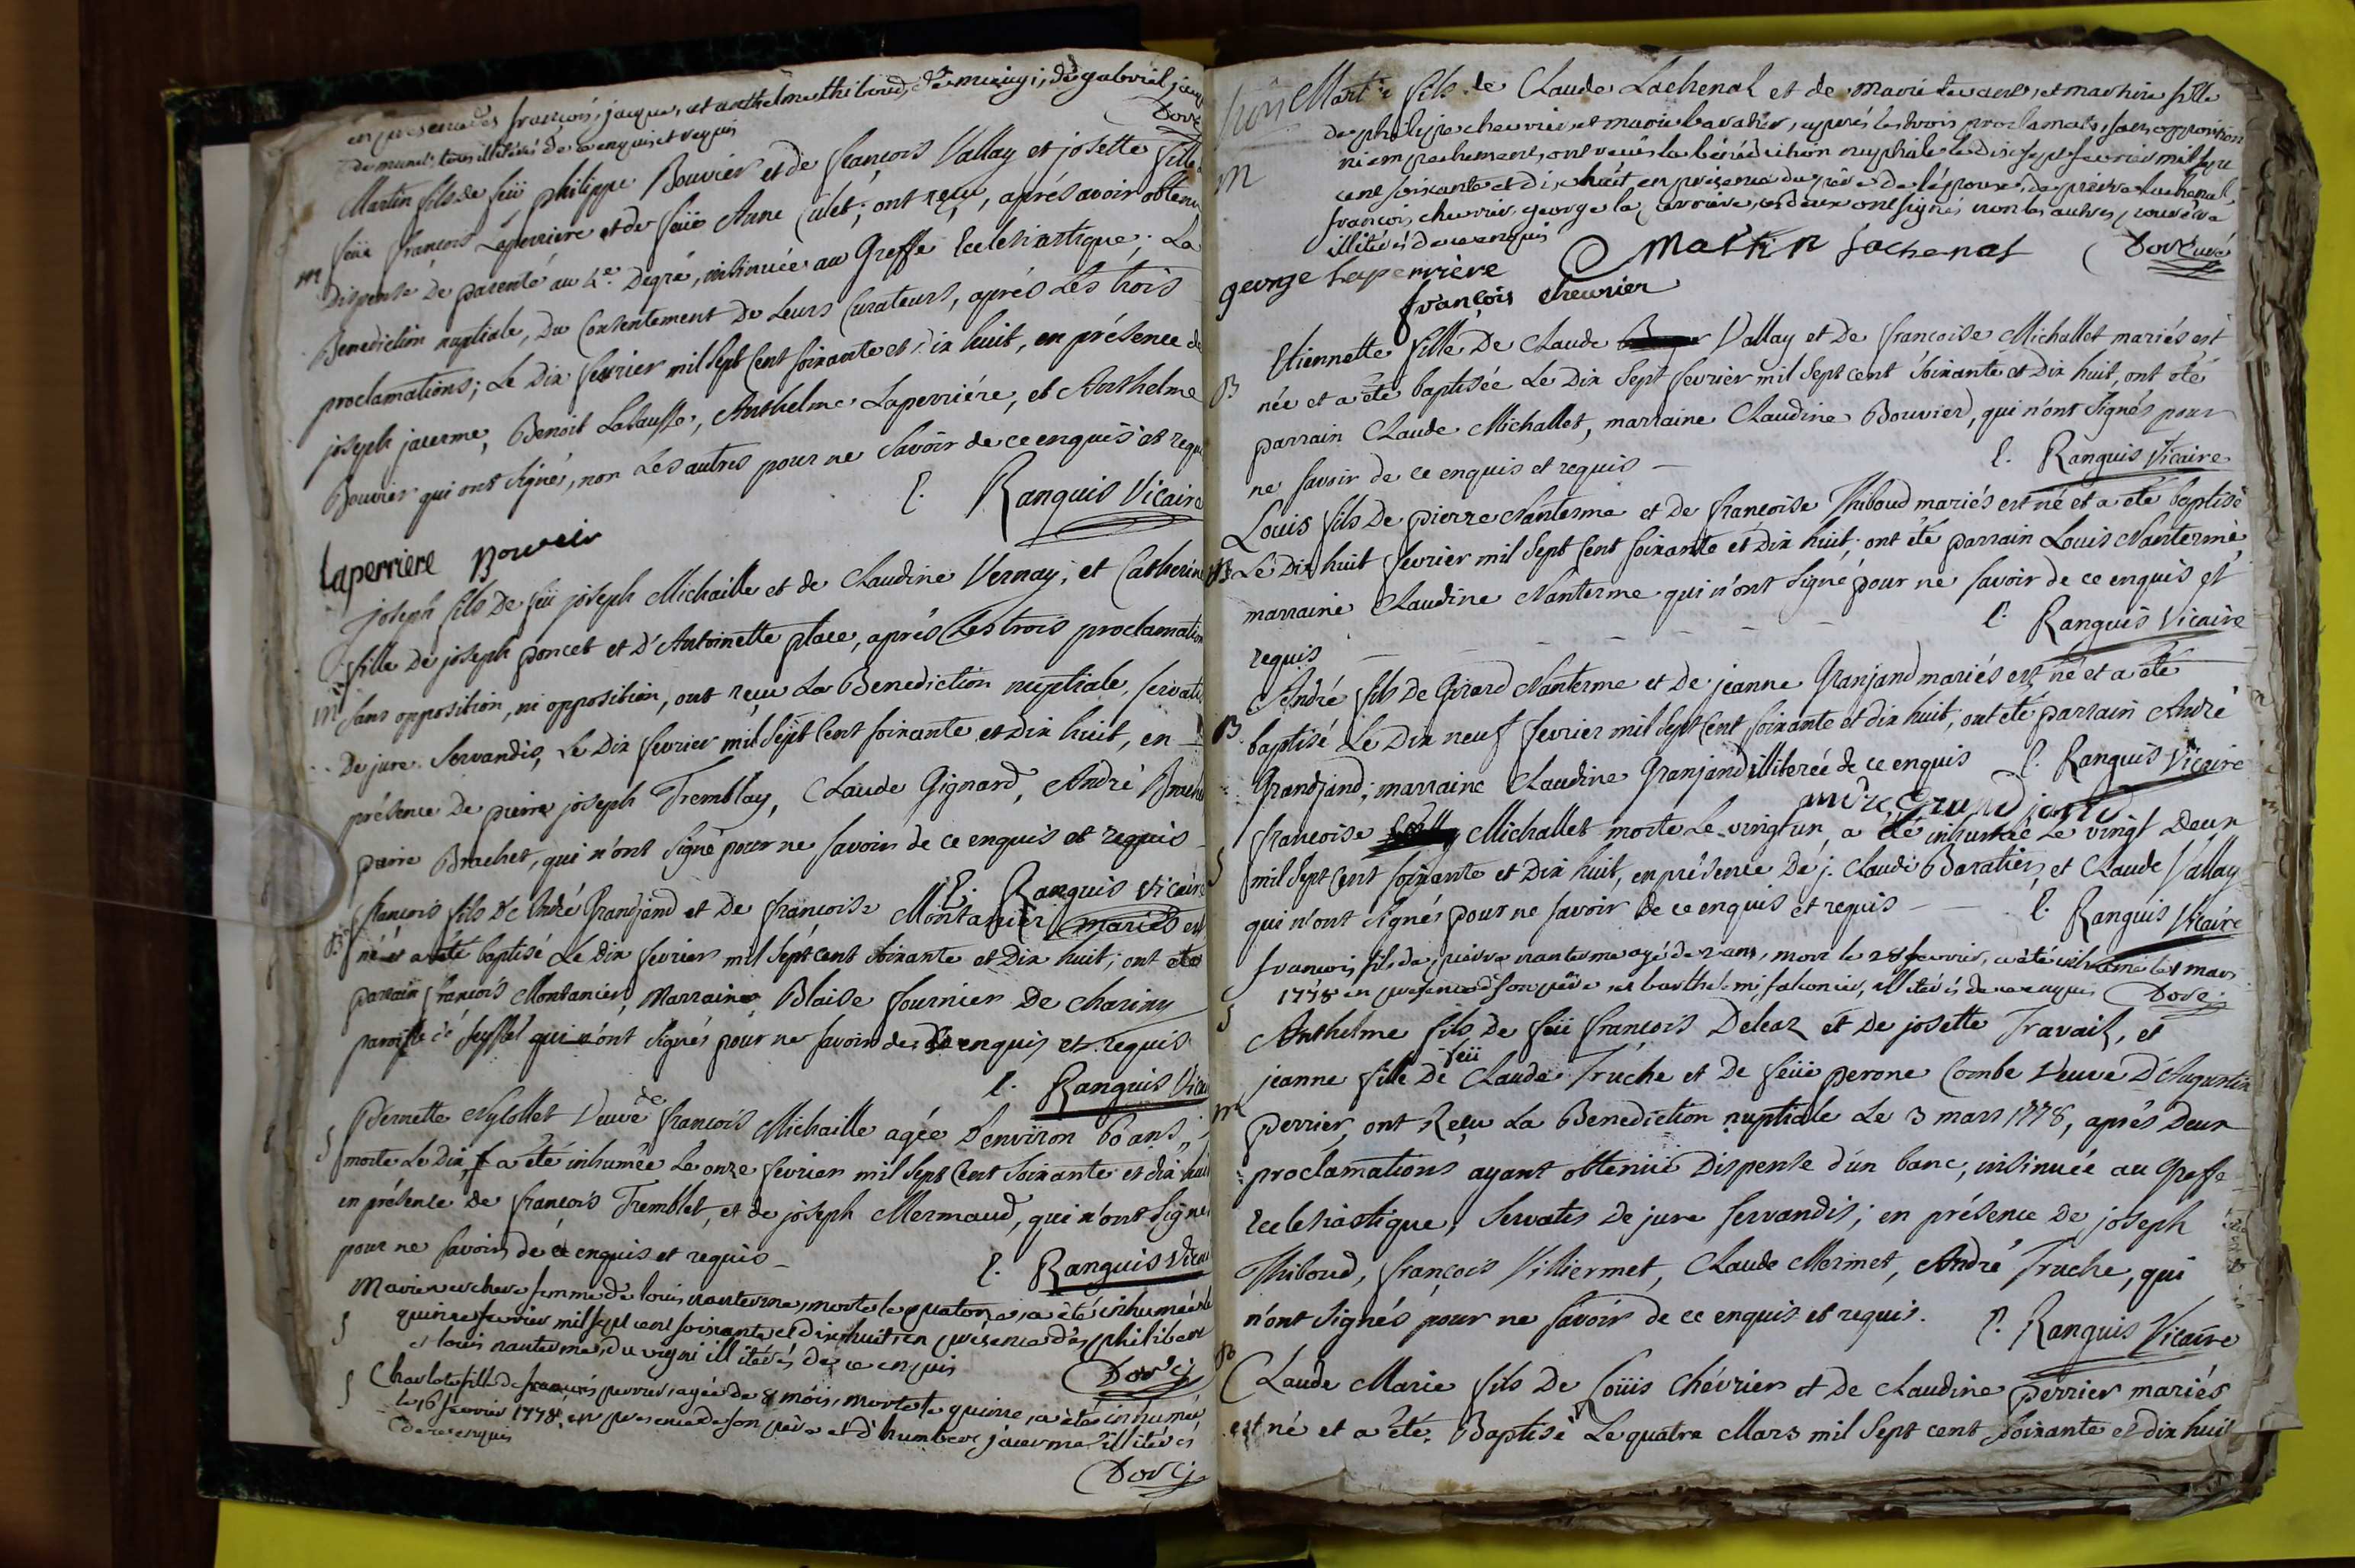 en presence des françois, jacques, et anthelme thiboud, de de gabriel
tous illitérés de ce enquis et requis
Dorc
Martin fils de feü philippe Bouvier et de françois Vallay et josette fille
feüe françois Laperriere et de feüe Anne Culet; ont reçu, aprés avoir obtenu
m
Dispense De parenté au 4e. Degré, insinuée au Greffe Ecclesiastique; La
Benediction nuptiale, Du Consentement De Leurs Curateurs, aprés Les trois
proclamations; Le Dix fevrier mil Sept Cent Soixante et Dix huit, en présence de
joseph jacerme, Benoit Labausse, Anthelme Laperriére, et Anthelme
Bouvier qui ont signé, non Les autres pour ne Savoir de ce enquis et requi
Ranguis Vicaire
Laperriere Bouveir
joseph fils De feü joseph Michaille et de Claudine Vernay, et Catherine
fille De joseph poncet et D'Antoinette place, aprés Les trois proclamation
m
Sans opposition, ni opposition, ont reçu La Benediction nuptiale, servatis
De jure Servandis, Le Dix fevrier mil Sept Cent Soixante et Dix huit, en
présence De pierre joseph Tremblay, Claude Gignard, André Brachet
pierre Brachet, qui n'ont Signé pour ne Savoir de ce enquis et requis
Ranguis Vicaire
B
francois fils De André Grandjand et De françoise Montanier mariés est
né et a été baptisé Le dix fevrier mil Sept cent Soixante et Dix huit; ont été
parrain francois Montanier, Marraine Blaise fournier De Chariny
paroisse de Seyssel qui n'ont Signés pour ne Savoir de ce enquis et requis
Ranguis Vicai
S
Pernette Nylollet Veuve de francois Michaille agée D'environ 60 ans,
morte Le Dix, a été inhumée Le onze fevrier mil Sept Cent Soixante et dix huit
en présence de François Tremblet, et de joseph Mermaud, qui n'ont Signé
pour ne Savoir de ce enquis et requis
Ranguis Vicai
Marie femme de louis nanterme, morte le quatorze, a été inhumée le
S
quinze fevrier mil sept cent soixante et dix huit en presence des philibert
et louis nanterme, du illitérés de ce enquis
Dorc
S
Charlote fille de françois perrier agée de 8 mois, morte le quinze, a été inhumée
le 16 fevrier 1778 en presence de son père et d'humbert jacerme illitérés
de ce enquis
Dorc
Martin fils de Claude Lachenal et de marie et marhire fille
de philippe chevrier et marie baratier, après les trois proclamats, sans opposition
ni empechement, ont reçus la bénédiction nuptiale le dix sept fevrier mil sept
m
cent soixante et dix huit en présence du père de l'épouse, de pierre Lachenal,
francois chevrier, george la perriere, ces deux ont signés non les autres
illitérés de ce enquis
martin Lachenal
Dorc curé
george Laperrière
françois chevrier
Etiennette fille De Claude Vallay et De francoise Michallet mariés est
B
née et a été baptisée Le Dix Sept fevrier mil Sept cent Soixante et Dix huit, ont été
parrain Claude Michallet, marraine Claudine Bouvier, qui n'ont Signés pour
ne Savoir de ce enquis et requis
Ranguis Vicaire
Louis fils De pierre Nanterme et De françoise Thiboud mariés est né et a été baptisé
B
Le Dix huit fevrier mil Sept Cent Soixante et Dix huit; ont été parrain Louis Nanterme
marraine Claudine Nanterme qui n'ont Signé pour ne Savoir de ce enquis et
requis
Ranguis Vicaire
André fils De Girard Nanterme et De jeanne Granjand mariés est né et a été
B
baptisé Le Dix neuf fevrier mil Sept Cent Soixante et dix huit, ont été parrain André
Grandjand; marraine Claudine Granjand illiterée de ce enquis
Ranguis Vicaire
andre Grand jand
francoise Michallet morte Le vingt un, a été inhumée Le vingt Deux
S
mil Sept Cent Soixante et Dix huit, en présence De j. Claude Baratier, et Claude Vallay
qui n'ont Signés pour ne Savoir de ce enquis et requis
Ranguis Vicaire
francois fils de pierre nanterme agé de 2 ans, mort le 28 fevrier, a été inhumé le 1 mars
1778 en presence de son père et barthélemi falconier, illitérés de ce enquis
Dorc
S
Anthelme fils De feü françois Deleaz et de josette Travail, et
jeanne fille De feü Claude Truche et De feüe perone Combe Veuve D'Augustin
m
perrier, ont Reçu La Benediction nuptiale Le 3 mars 1778, aprés Deux
proclamations ayant obtenüe Dispense d'un banc, insinuée au Greffe
Ecclesiastique, Servatis De jure Servandis; en présence De joseph
Thiboud, françois Villiermet, Claude Mermet, André Truche, qui
n'ont Signés pour ne Savoir de ce enquis et requis.
Ranguis Vicaire
B
Claude Marie fils De Loüis Chévrier et de claudine perrier mariés
est né et a été Baptisé Le quatre Mars mil Sept cent Soixante et dix huit